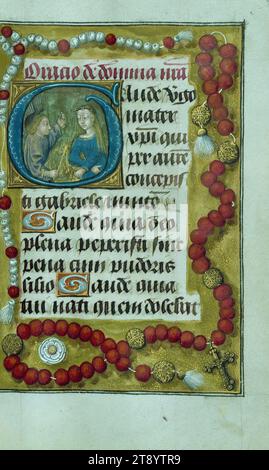 Oracio de domina nra
Gaude virgo
mater
xpi qui
per aure
concepis
ti gabriele nuncio
Gaude quia deo
plena peperisti sine
pena cum pudoris
lilio Gaude quia
tui nati quem dolebas
alamy
Image ID: 2T8YTR9
www.alamy.com